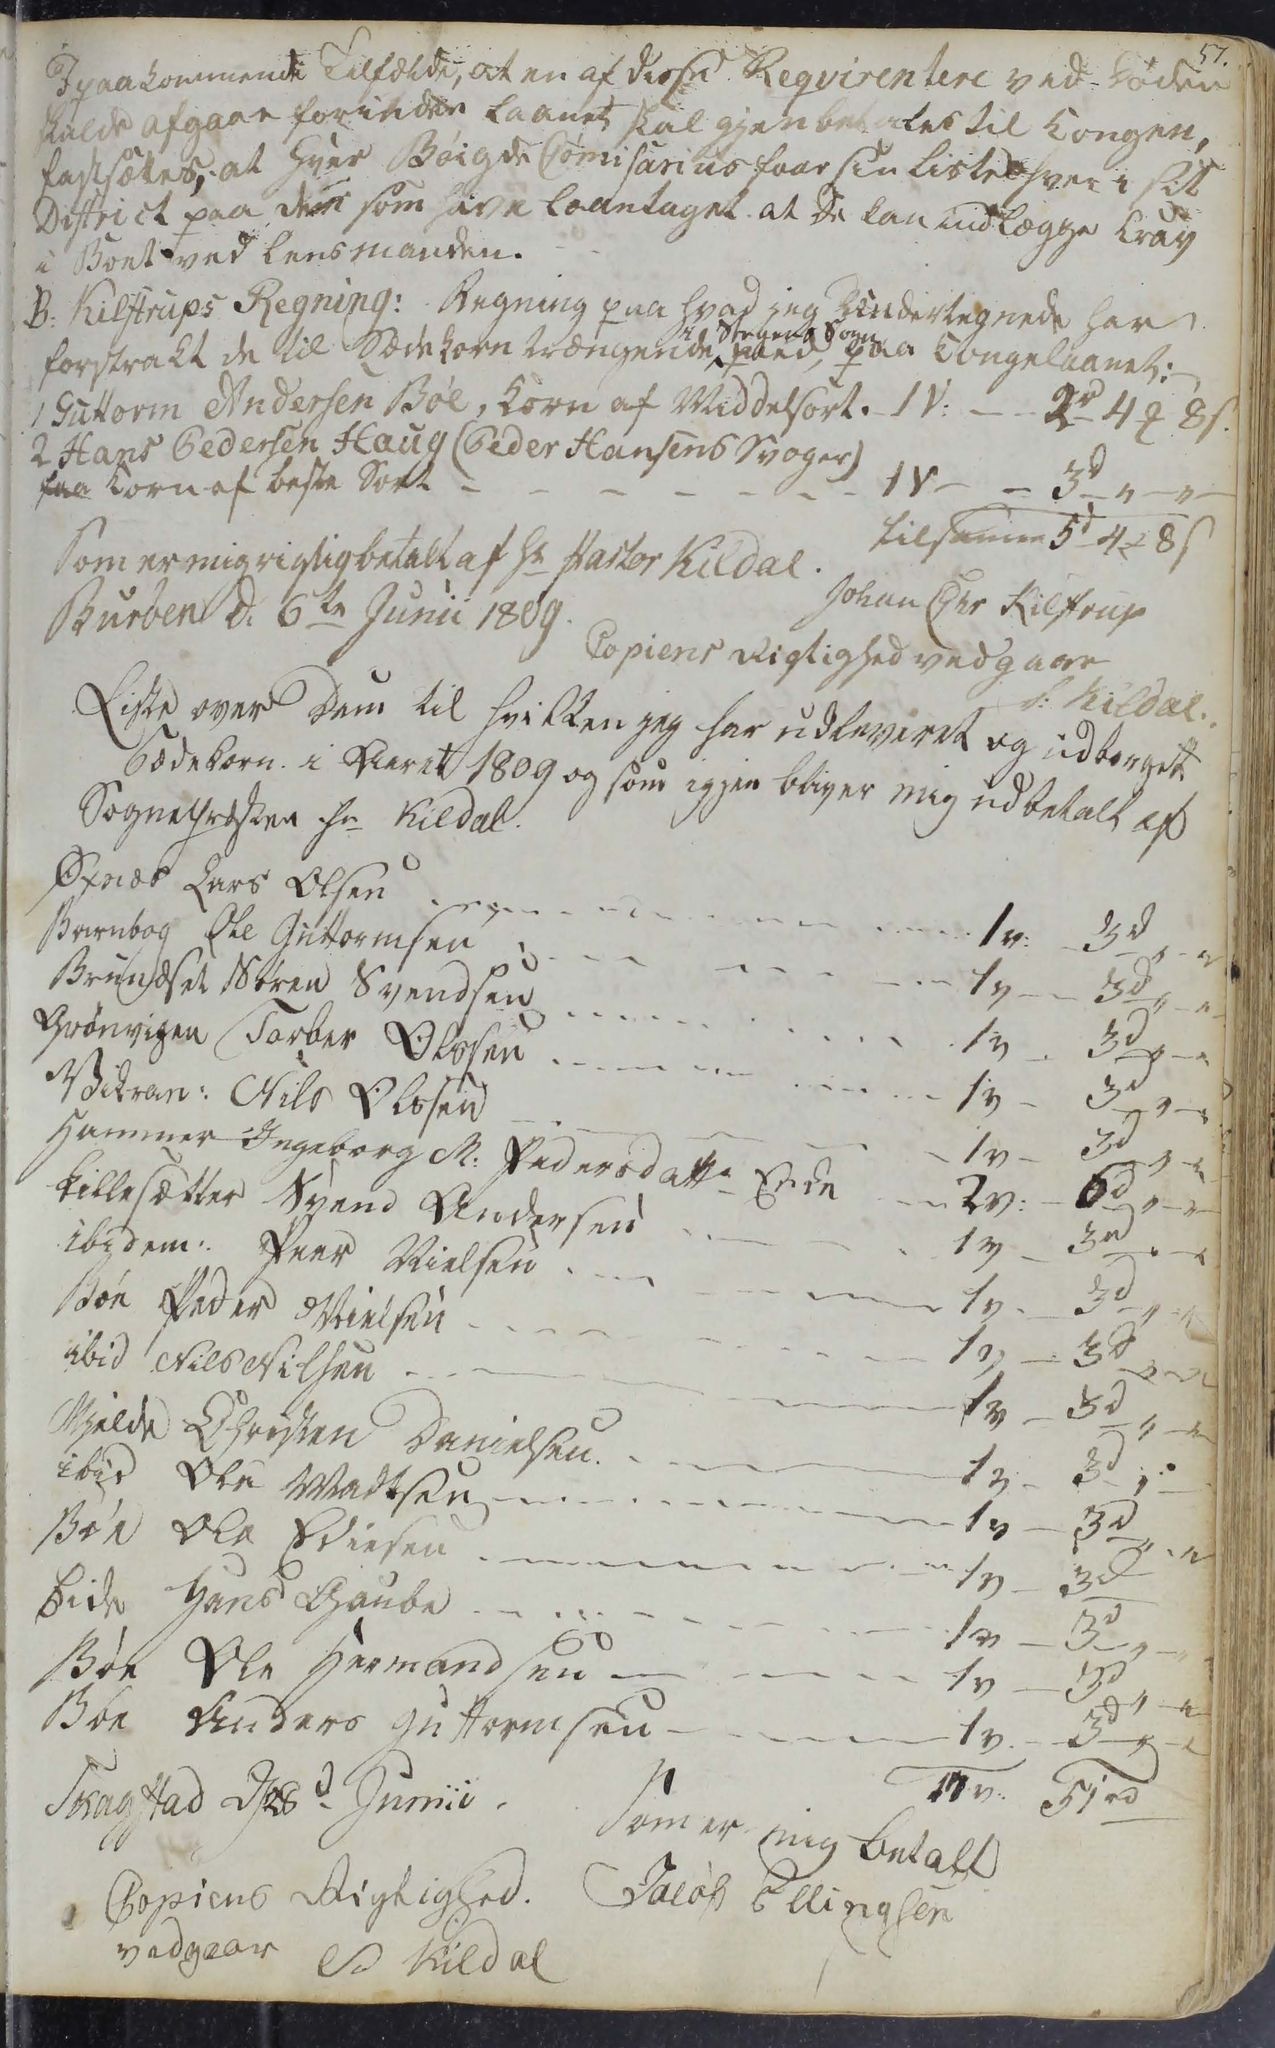 57.
I paakommende Tilfælde, at en af disse Reqvirentere ved Døden
skulde afgaae forinden Laanet skal gjenbetales til Kongen,
fastsættes, at hver Böigde Comisarius faar sin Liste hver i sit
District paa dem som have Laantaget at de kan indlægge Krav
i Boet ved Lensmanden.
B: Kilstrups Regning: Regning paa hvad jeg Undertegnede har
forstrakt de til Sædekorn trængende i Stegens Sogn med, paa Kongelaanet:
1 Guttorm Andersen Böe, Korn af Middelsort. 1 V: - - 2rd 4 ₰ 8 s.
2 Hans Pedersen Haug (Peder Hansens Svoger)
faa Korn af beste Sort - - - - - - - - 1 V - - 3d - " - " -
tilsamen 5d 4 ₰ 8 s
Som er mig rigtig betalt af Hr Pastor Kildal.
Johan Chr Kilstrup
Burøen d. 6te Junii 1809.
Copiens Rigtighed vedgaar
S: Kildal.
Liste over Dem til hvilken jeg har udleveret og udborget
Sædekorn i Aaret 1809 og som igjen bliver mig udbetalt af
Sognepræsten Hr Kildal.
Øxnæs Lars Olsen - - - 1 v: - 3d - " - "
Ole Guttormsen - - - 1 v - 3d - " - "
Brundset Sören Svendsen - - - 1 v - 3d - " - "
Grönvigen Torber Olssen - - - 1 v - 3d - " - "
Vikran: Nils Olssen - - - 1 v - 3d - " - "
Hammer Ingeborg M: Pedersdatter Enke - - 2 v: - 6d - " - "
Lillesætter Svend Andersen - - - 1 v - 3d - " - "
ibidem: Peer Nielsen - - - 1 v - 3d - " - "
Böe Peder Nielsen - - - 1 v - 3d - " - "
ibid Nils Nilsen - - - 1 v - 3d - " - "
Mjelde Christen Danielsen - - - 1 v - 3d - " -
ibid Ole Madtsen - - - 1 v - 3d - " - "
Böe Ole Ediesen - - - 1 v - 3d
Eide Hans Gaube - - - 1 v - 3d - " - "
Böe Ole Hermandsen - - - 1 v - 3d - " - "
Böe Anders Guttormsen - - - 1 v. - 3d - " - "
17 v: 51 rd
Skagstad D 28d Junii.
Som er mig betalt
Copiens Rigtighed. Jacob Ellingsen
vedgaar S. Kildal